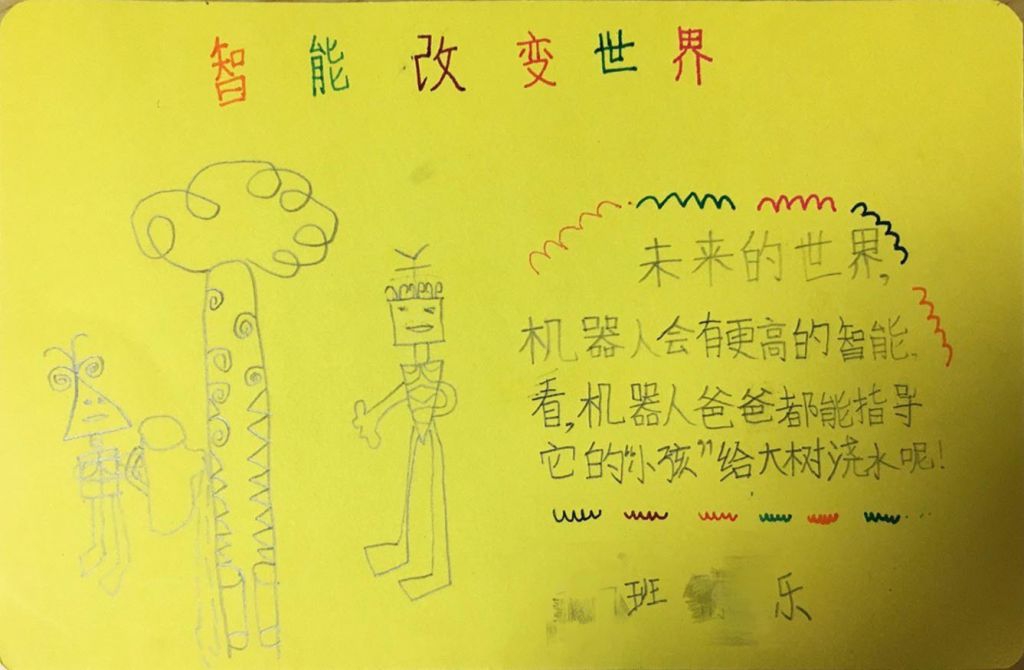 智能改变世界
未来的世界,
机器人会有更高的智能.
看,机器人爸爸都能指导
它的“小孩”给大树浇水呢!
班 乐